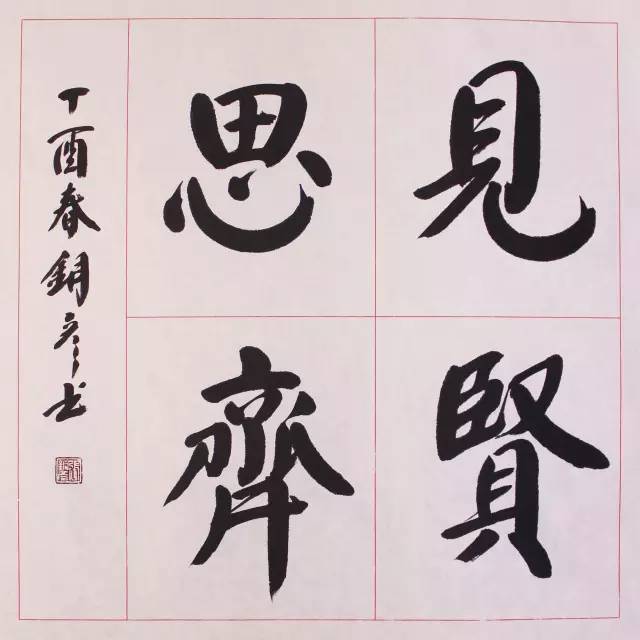 見賢
思齊
丁酉春銅彥书